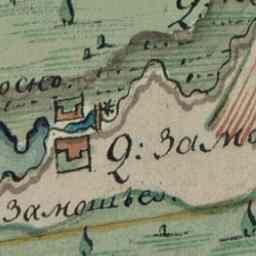 осно.
Q: Замо
Замошье.